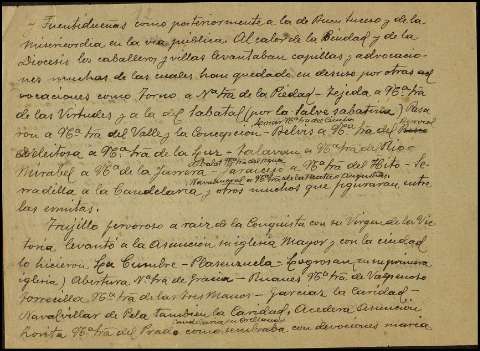 - Fuentidueñas como posteriormente a la de Buen Suceso y de la
Misericordia en la via publica. Al calor de la Ciudad y de la
Diocesis los caballeros y villas levantaban capillas y advocacio-
nes muchas de las cuales han quedado en desuso por otras ad
vocaciones como Torno a Nª trª de la Piedad - Tejeda a Nª trª
de las Virtudes y a la del Sabatal (por la Salve sabatina) Pasa
ron a Nª trª del Valle y la Concepcion - Belvis a Nª trª del
Deleitosa a Nª trª de la Luz - Talavan a Nª trª del Rio -
Mirabel a Nª de la Jarrera - Jaraicejo a Nª trª del Hito - Se-
rradilla a la Candelaria, y otros muchos que figuraran entre
las ermitas.
Trujillo fervoroso a raiz de la Conquista con su Virgen de la Vic
toria levantó a la Asuncion su iglesia Mayor y con la ciudad
lo hicieron La Cumbre - Plasenzuela - Logrosan en su primera
iglesia) Abertura Nª trª de Gracia - Ruanes Nª trª de Valpenoso
Torrecilla Nª trª de las Tres Manos - Garciaz la Caridad -
Navalvillar de Pela tambien la Caridad, Acedera Asuncion
Zorita Nª trª del Prado como sembraba con devociones maria